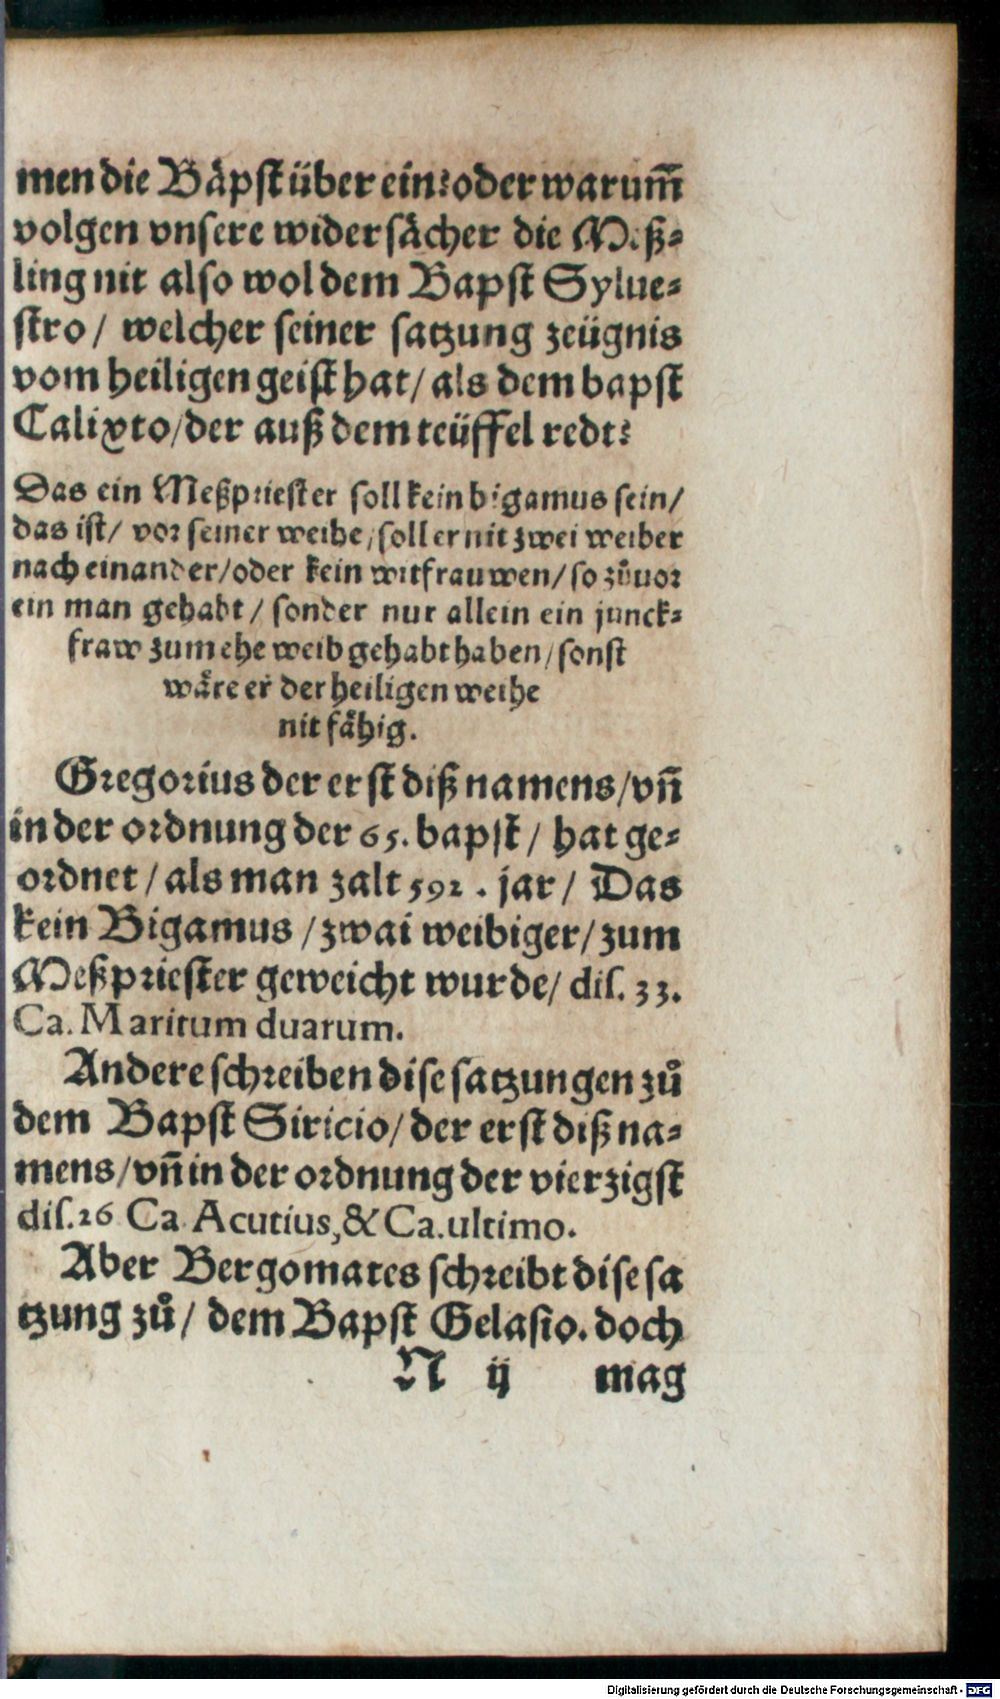 men die Bäpst über ein? oder warum̃
volgen vnsere widersächer die Meß-
ling nit also wol dem Bapst Sylue-
stro / welcher seiner satzung zeügnis
vom heiligen geist hat / als dem bapst
Calixto / der auß dem teüffel redt?
Das ein Meßpriester soll kein bigamus sein /
das ist / vor seiner weihe / soll er nit zwei weiber
nach einander / oder kein witfrauwen / so zůuor
ein man gehabt / sonder nur allein ein junck-
fraw zum ehe weib gehabt haben / sonst
wäre er der heiligen weihe
nit fähig.
Gregorius der erst diß namens / vñ
in der ordnung der 65. bapst / hat ge-
ordnet / als man zalt 592. jar / Das
kein Bigamus / zwai weibiger / zum
Meßpriester geweicht wurde / dis. 33.
Ca. Maritum duarum.
Andere schreiben dise satzungen zů
dem Bapst Siricio / der erst diß na-
mens / vñ in der ordnung der vierzigst
dis. 26 Ca. Acutius, & Ca. ultimo.
Aber Bergomates schreibt dise sa
tzung zů / dem Bapst Gelasio. doch
N ij mag
Digitalisierung gefördert durch die Deutsche Forschungsgemeinschaft - DFG